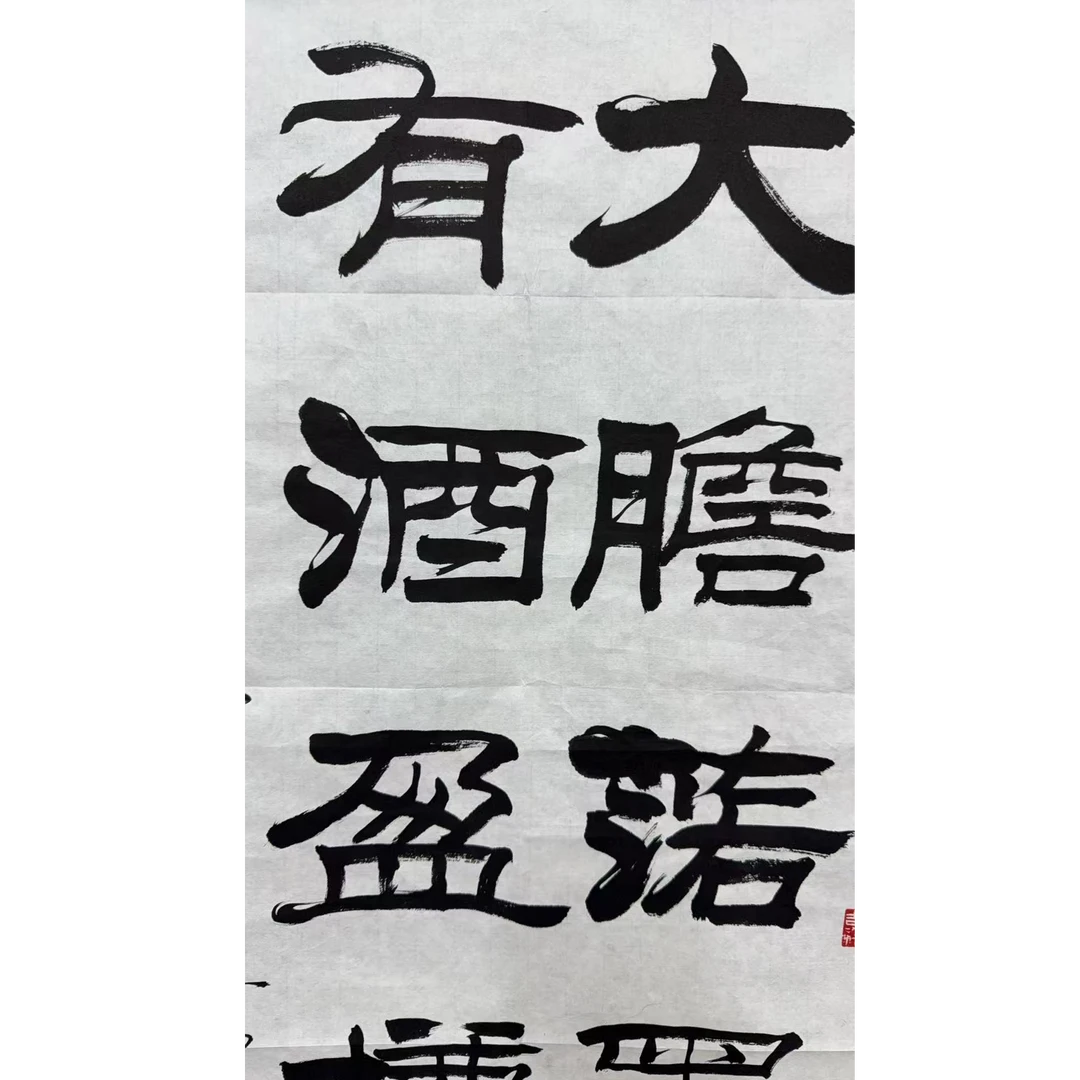 大膽落
有酒盈